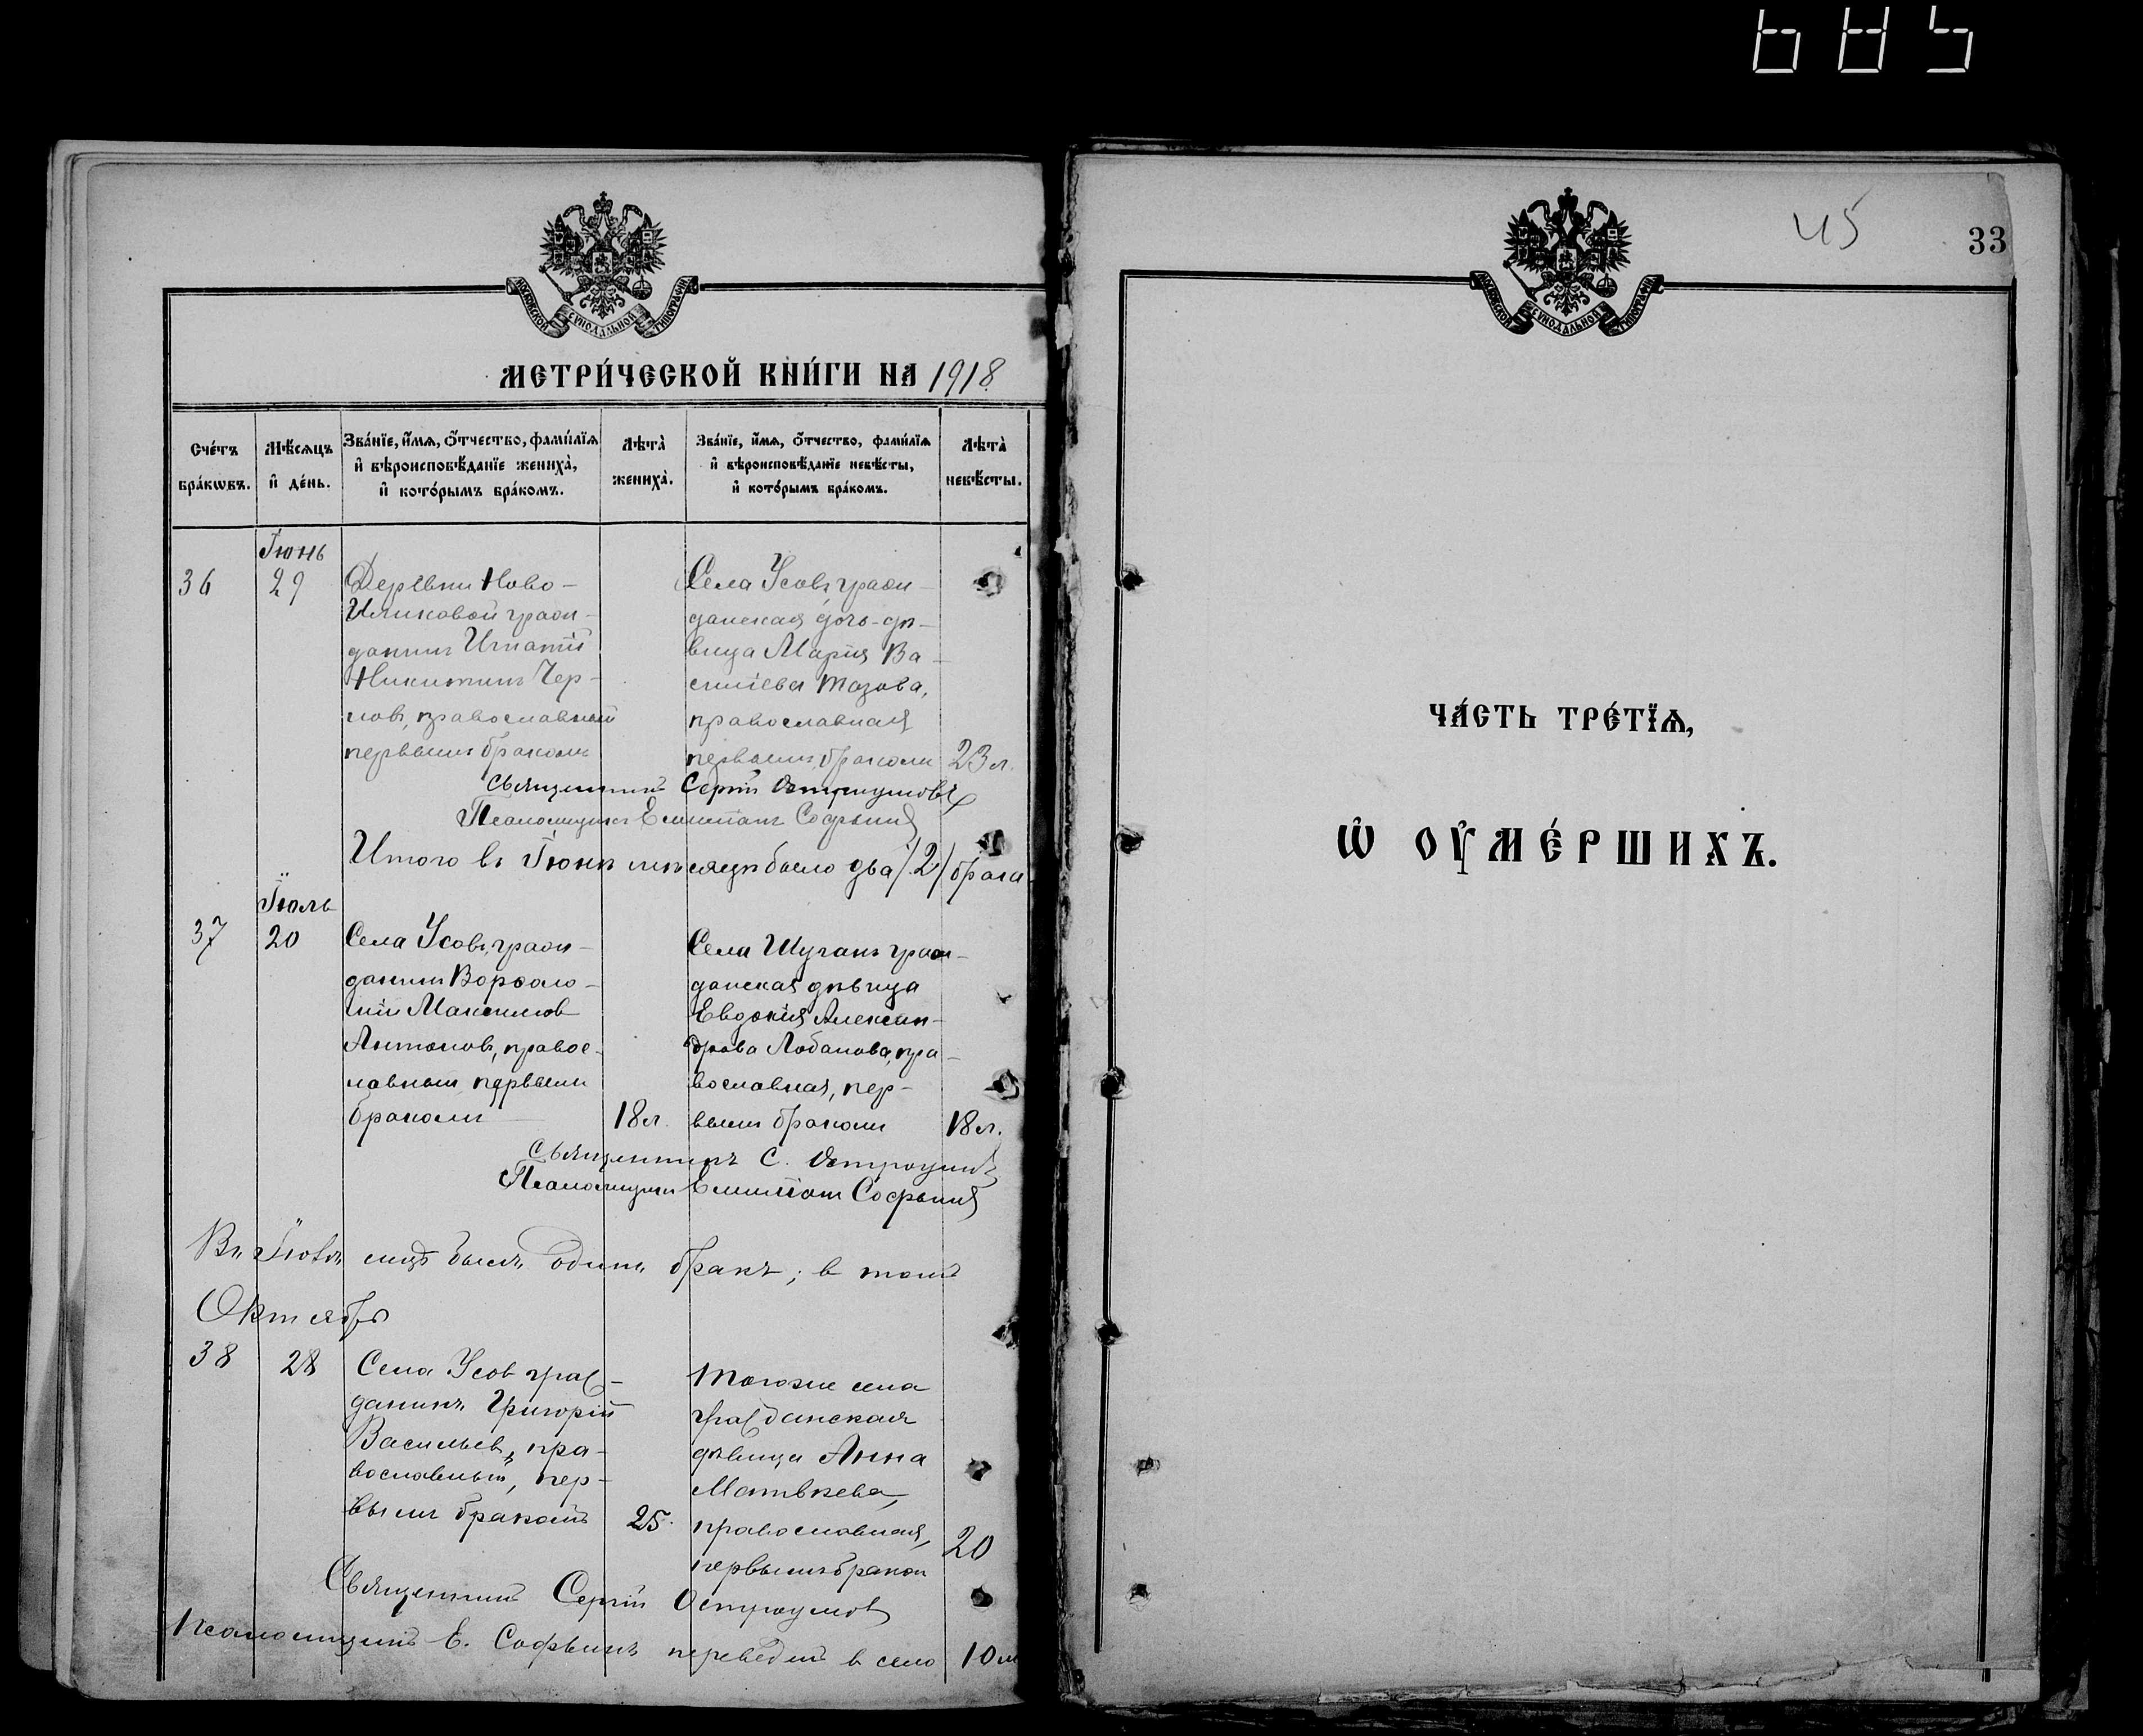 685
МОСКОВСКОЙ СУНОДАЛЬНОЙ ТИПОГРАФІИ
МЕТРИ́ЧЕСКОЙ КНИ́ГИ НА 1918
Сче́тъ бра́кѡвъ.
Мѣ́сѧцъ и҆ де́нь.
Зва́нїе, и҆́мѧ, ѻ҆́тчество, фами́лїѧ
и҆ вѣроисповѣ́данїе жениха̀,
и҆ кото́рымъ бра́комъ.
Лѣта̀ жениха̀.
Зва́нїе, и҆́мѧ, ѻ҆́тчество, фами́лїѧ
и҆ вѣроисповѣ́данїе невѣ́сты,
и҆ кото́рымъ бра́комъ.
Лѣта̀ невѣ́сты.
Іюнь
36
29
Деревни Ново-
Иликовой граж-
данинъ Игнатій
Никитинъ Чер-
новъ, православный
первымъ бракомъ
Села Усовъ граж-
данская дочь-дѣ-
вица Марія Ва-
силіева Тазова,
православная
первымъ бракомъ
23 л.
Священникъ Сергій Остроумовъ
Псаломщикъ Емиліанъ Софьинъ
Итого въ Іюнѣ мѣсяцѣ было два /2/ брака
Іюль
37
20
Села Усовъ граж-
данинъ Варѳоло-
мій Максимовъ
Антоновъ, правос-
лавный первымъ
бракомъ
18 л.
Села Шуганъ граж-
данская дѣвица
Евдокія Алексан-
дрова Лобанова, пра-
вославная, пер-
вымъ бракомъ
18 л.
Священникъ С. Остроумовъ
Псаломщикъ Емиліанъ Софьинъ
Въ Іюлѣ мцѣ былъ одинъ бракъ; в томъ
Октябрь
38
28
Села Усовъ граж-
данинъ Григорій
Васильевъ, пра-
вославный, пер-
вымъ бракомъ
25.
Тогоже села
гражданская
дѣвица Анна
Матвѣева,
православная,
первымъ браком
20
Священникъ Сергій Остроумовъ
Псаломщикъ Е. Софьинъ переведенъ в село
45
33
МОСКОВСКОЙ СУНОДАЛЬНОЙ ТИПОГРАФІИ
ЧА́СТЬ ТРЕ́ТЇѦ,
Ѡ҆ ОУ҆МЕ́РШИХЪ.